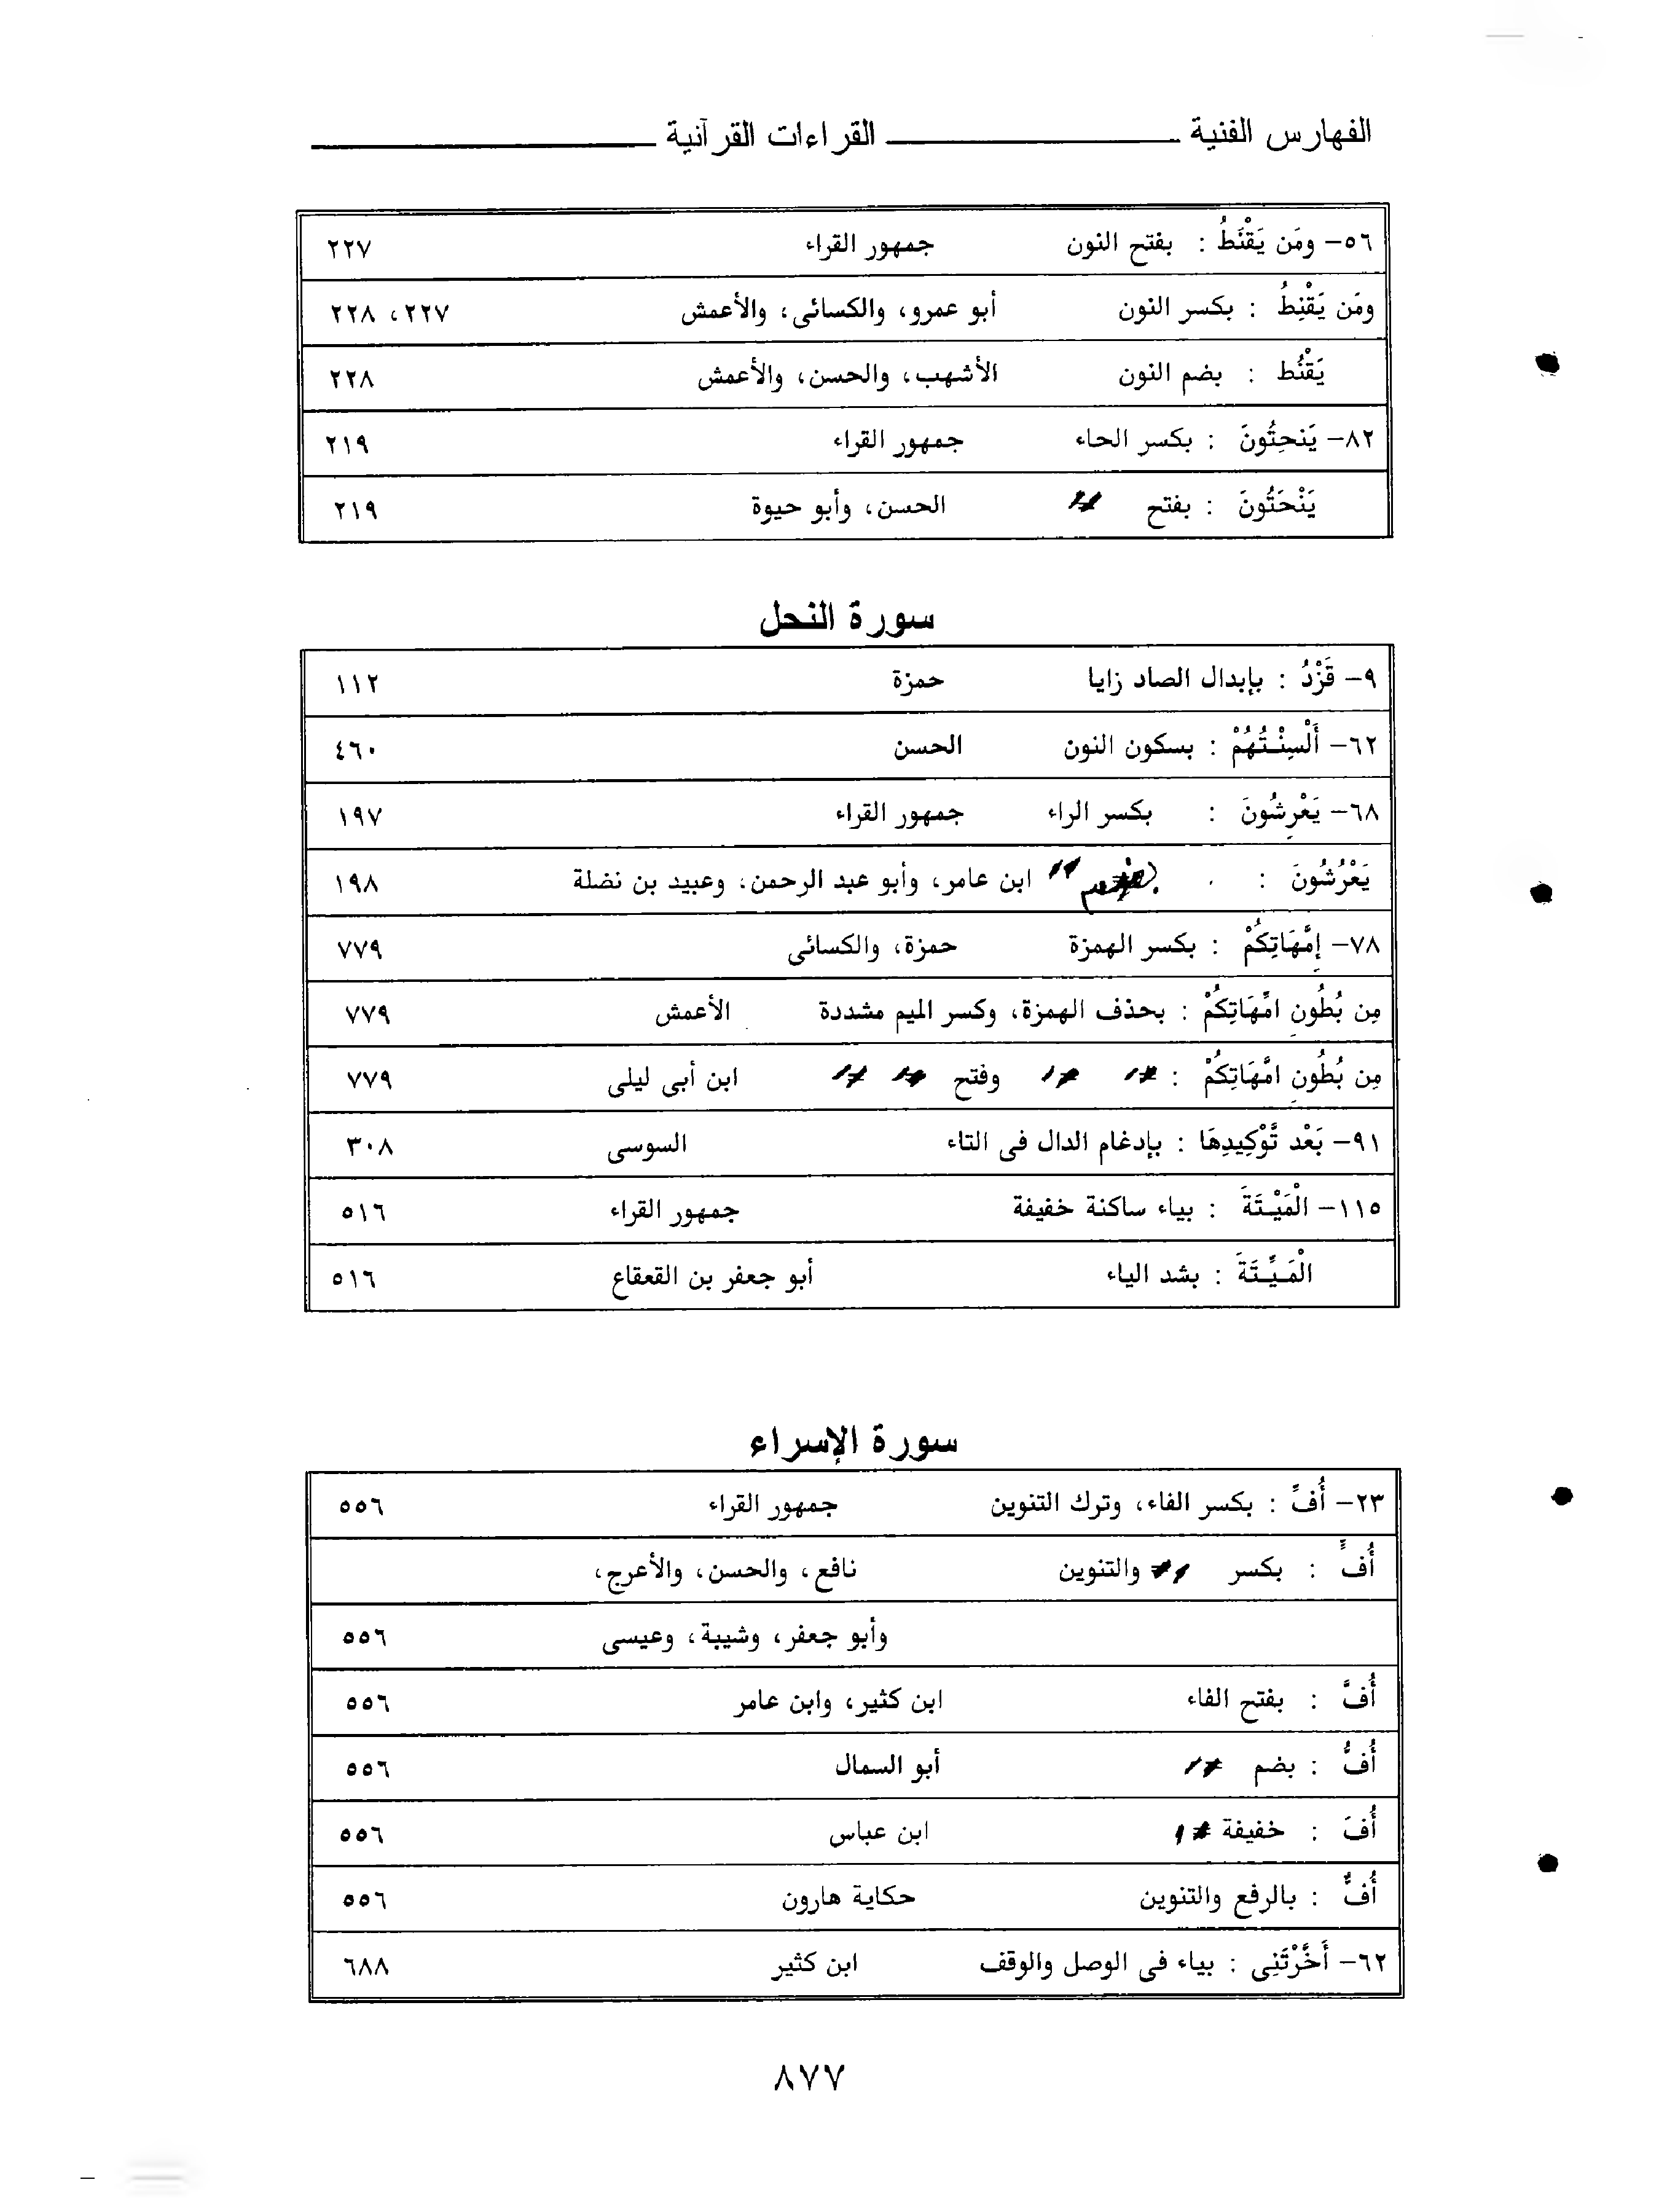 الفهارس الفنية القراءات القرآنية
٥٦- ومَن يَقْنَطُ : بفتح النون جمهور القراء ٢٢٧
ومَن يَقْنِطُ : بكسر النون أبو عمرو، والكسائى، والأعمش ٢٢٧، ٢٢٨
يَقْنُط : بضم النون الأشهب، والحسن، والأعمش ٢٢٨
٨٢- يَنحِتُونَ : بكسر الحاء جمهور القراء ٢١٩
يَنْحَتُونَ : بفتح // الحسن، وأبو حيوة ٢١٩
سورة النحل
٩- قَزْدُ : بإبدال الصاد زايا حمزة ١١٢
٦٢- أَلْسِنْـتُهُمْ : بسكون النون الحسن ٤٦٠
٦٨- يَعْرِشُونَ : بكسر الراء جمهور القراء ١٩٧
يَعْرُشُونَ : بضم // ابن عامر، وأبو عبد الرحمن، وعبيد بن نضلة ١٩٨
٧٨- إِمَّهَاتِكُمْ : بكسر الهمزة حمزة، والكسائى ٧٧٩
مِن بُطُونِ امِّهَاتِكُمْ : بحذف الهمزة، وكسر الميم مشددة الأعمش ٧٧٩
مِن بُطُونِ امَّهَاتِكُمْ : // // وفتح // // ابن أبى ليلى ٧٧٩
٩١- بَعْد تَّوْكِيدِهَا : بإدغام الدال فى التاء السوسى ٣٠٨
١١٥- الْمَيْـتَةَ : بياء ساكنة خفيفة جمهور القراء ٥١٦
الْمَـيِّـتَةَ : بشد الياء أبو جعفر بن القعقاع ٥١٦
سورة الإسراء
٢٣- أُفِّ : بكسر الفاء، وترك التنوين جمهور القراء ٥٥٦
أُفٍّ : بكسر // والتنوين نافع، والحسن، والأعرج،
وأبو جعفر، وشيبة، وعيسى ٥٥٦
أُفَّ : بفتح الفاء ابن كثير، وابن عامر ٥٥٦
أُفُّ : بضم // أبو السمال ٥٥٦
أُفَ : خفيفة // ابن عباس ٥٥٦
أُفٌّ : بالرفع والتنوين حكاية هارون ٥٥٦
٦٢- أَخَّرْتَنِى : بياء فى الوصل والوقف ابن كثير ٦٨٨
٨٧٧